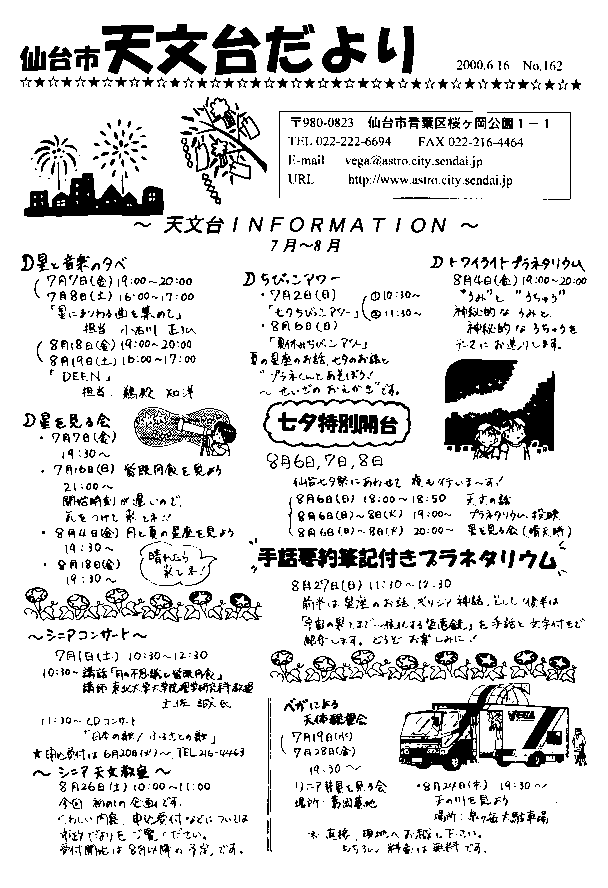 仙台市 天文台だより 2000.6.16 No.162
〒980-0823 仙台市青葉区桜ヶ岡公園1-1
TEL 022-222-6694 FAX 022-216-4464
E-mail vega@astro.city.sendai.jp
URL http://www.astro.city.sendai.jp
～ 天文台INFORMATION ～
7月～8月
星と音楽の夕べ
7月7日(金) 19:00～20:00
7月8日(土) 16:00～17:00
「星にまつわる曲を集めて」
担当
8月18日(金) 19:00～20:00
8月19日(土) 16:00～17:00
「DEEN」
担当
星を見る会
・7月7日(金)
19:30～
・7月16日(日) 皆既月食を見よう
21:00～
開始時刻が遅いので、
気をつけて来てネ!!
・8月4日(金) 月と夏の星座を見よう
19:30～
・8月18日(金)
19:30～
晴れたら
来てネ!
ちびっこアワー
・7月2日(日)
「七夕ちびっこアワー」
①10:30～
②11:30～
・8月6日(日)
「夏休みちびっこアワー」
夏の星座のお話、七夕のお話と
"プラネくんとあそぼう!
～せいざのおえかき"です。
トワイライトプラネタリウム
8月4日(金) 19:00～20:00
"うみ"と"うちゅう"
神秘的なうみと、
神秘的なうちゅうを
テーマにお送りします。
七夕特別開台
8月6日,7日,8日
仙台七夕祭にあわせて 夜も行いまーす!
8月6日(日) 18:00～18:50 天文の話
8月6日(日)～8日(火) 19:00～ プラネタリウム投映
8月6日(日)～8日(火) 20:00～ 星を見る会(晴天時)
"手話要約筆記付きプラネタリウム"
8月27日(日) 11:30～12:30
前半は星座のお話、ギリシア神話、そして後半は
を手話と文字付きで
紹介します。どうぞお楽しみに!
～シニアコンサート～
7月1日(土) 10:30～12:30
10:30～ 講話「月の不思議と皆既月食」
講師 東北大学大学院理学研究科教授
土佐 誠氏
11:30～ CDコンサート
「日本の歌・ふるさとの歌」
★申込受付は6月20日(火)～ TEL 216-4463
～シニア天文教室～
8月26日(土) 10:00～11:00
今回初めての企画です。
くわしい内容、申込受付などについては
次号だよりをご覧ください。
受付開始は8月以降の予定です。
ベガによる
天体観望会
7月19日(水)
7月28日(金)
19:30～
リニア彗星を見る会
場所: 葛岡墓地
・8月24日(木) 19:30～
天の川を見よう
場所: 泉ヶ岳大駐車場
※直接、現地へお越し下さい。
もちろん、料金は無料です。